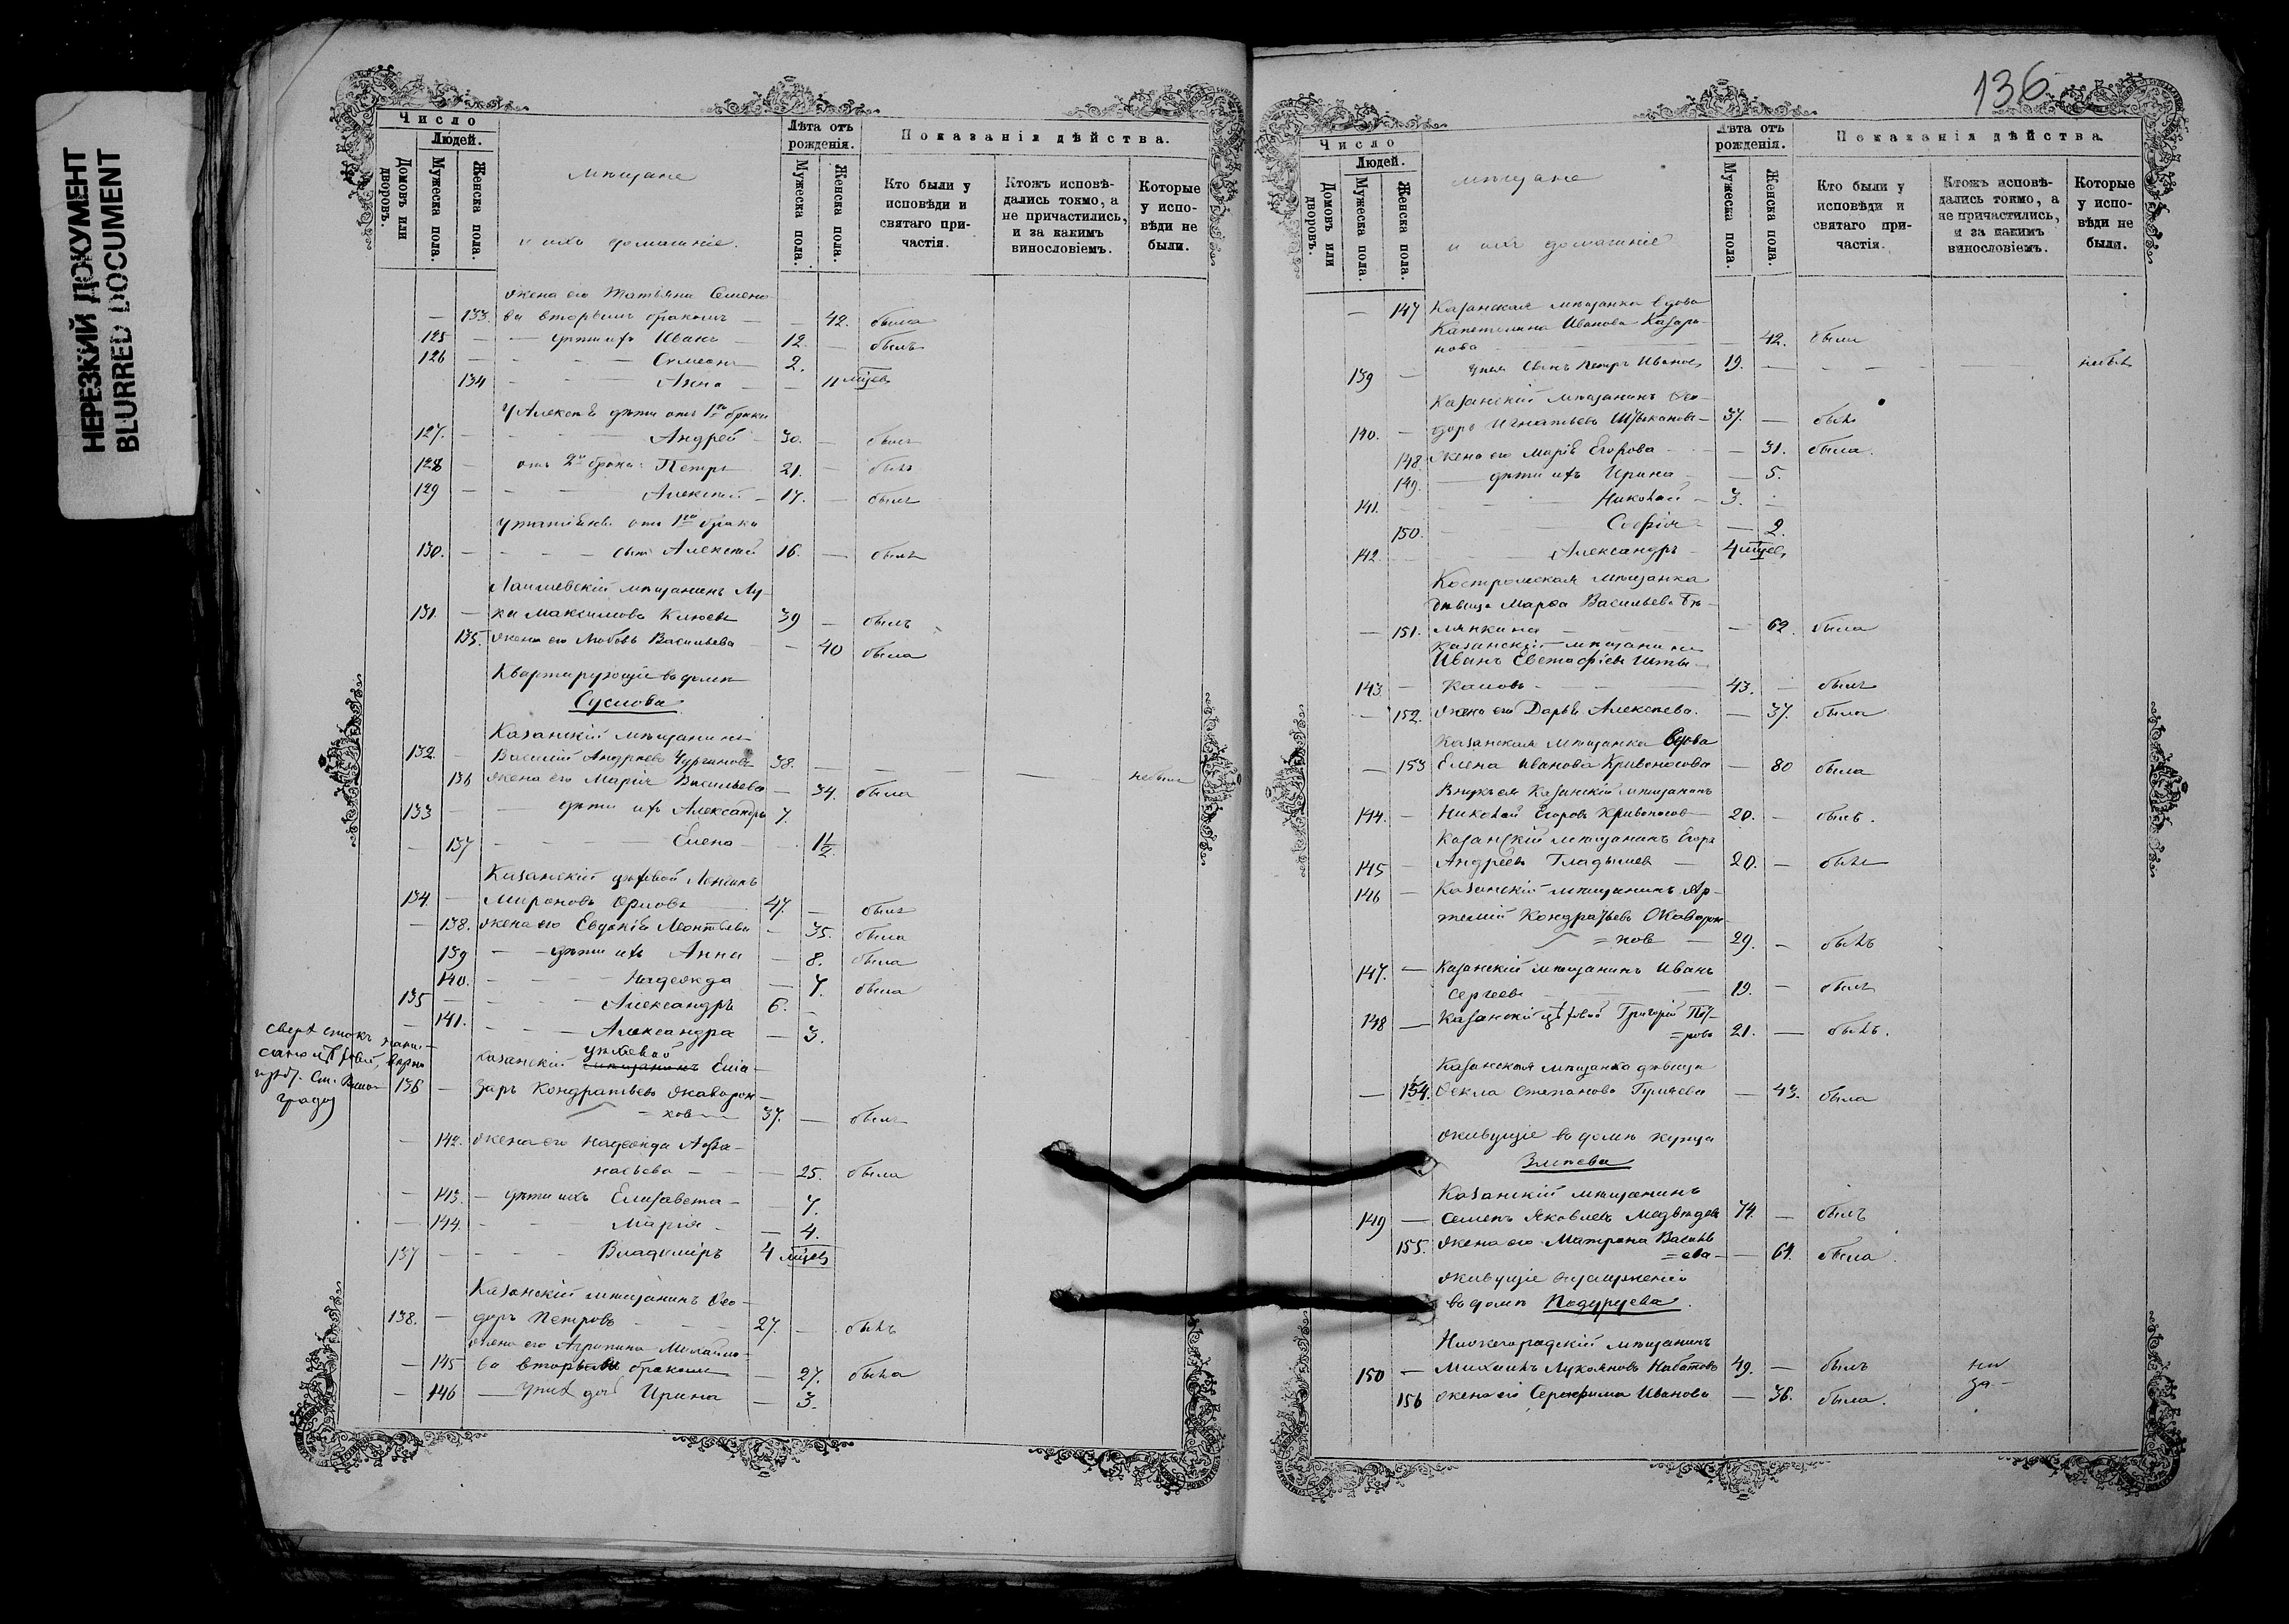 НЕРЕЗКИЙ ДОКУМЕНТ
BLURRED DOCUMENT
Число
Людей.
Домовъ или дворовъ.
Мужеска пола.
Женска пола.
мѣщане
и ихъ домашніе.
Лѣта отъ рожденія.
Мужеска пола.
Женска пола.
Показанія дѣйства.
Кто были у исповѣди и святаго причастія.
Ктожъ исповѣдались токмо, а не причастились, и за какимъ винословіемъ.
Которые у исповѣди не были.
жена его Татьяна Семено-
— 133. ва вторымъ бракомъ — — 42. была
125 — — дѣти ихъ Иванъ 12. — былъ
126 — — — Симеонъ 2.
134 — — — Анна — — 11 мѣсяц
у Алексѣя дѣти отъ 1го брака
127. — — — Андрей — 30. — былъ
128 — отъ 2го брака: Петръ 21. — былъ
129 — — — Алексѣй — 17. — былъ
у Татьяны отъ 1го брака
130. — — — сынъ Алексѣй 16. — былъ
Лаишевскій мѣщанинъ Лу-
131. — ка Максимовъ Клюевъ 39 — былъ
135. жена его Любовь Васильева — 40 была
Квартирующіе въ домѣ
Суслова
Казанскій мѣщанинъ
132. — Василій Андреевъ 38. — — — небылъ
136 жена его Марія Васильева — 34. была
133 — — дѣти ихъ Александръ 7.
— 137 — — — Елена — 1½
Казанскій цѣховой Логинъ
134. — Мироновъ Орловъ 47. — былъ
— 138. жена его Евдокія Леонтьева — 35. была
139 — — дѣти ихъ Анна — 8. была
140. — — — Надежда — 7. была
135 — — — Александръ 6. —
— 141. — — — Александра — 3.
Сверхъ строкъ напи-
санное цѣховой, вѣрно
градов
Казанскій цѣховой мѣщанинъ Елиа-
136 — заръ Кондратьевъ Жаворон-
=ковъ — 37. — былъ
— 142. жена его Надежда Афа-
насьева — — — 25. была
— 143. — дѣти ихъ Елизавета — — 7.
— 144. — — — Марія — — 4.
137 — — — Владиміръ 4 мѣсяц
Казанскій мѣщанинъ Ѳео-
138. — доръ Петровъ — — 27. — былъ
жена его Агрипина Михайло-
— 145 ва вторымъ бракомъ — 27. была
— 146 — у нихъ доч Ирина — 3.
136
Число
Людей.
Домовъ или дворовъ.
Мужеска пола.
Женска пола.
мѣщане
и ихъ домашніе
Лѣта отъ рожденія.
Мужеска пола.
Женска пола.
Показанія дѣйства.
Кто были у исповѣди и святаго причастія.
Ктожъ исповѣдались токмо, а не причастились, и за какимъ винословіемъ.
Которые у исповѣди не были.
— 147 Казанская мѣщанка вдова
Капетолина Иванова Казари-
нова — — — — 42. была
139 — у нея сынъ Петръ Ивановъ 19. — — — — небылъ
Казанскій мѣщанинъ Ѳео-
140. — доръ Игнатьевъ 37. — былъ
148. жена его Марія Егорова — — 31. была.
149. — дѣти ихъ Ирина — — 5.
141. — — — Николай — 3. —
150. — — — Софія — — 2.
142. — — — Александръ — 4 мѣсяц
Костромская мѣщанка
дѣвица Марѳа Васильева Бѣ-
— 151. лянкина — — — 62. была
Казанскій мѣщанинъ
Иванъ Евстафіевъ
143. — 43. — былъ
— 152. жена его Дарья Алексѣева. — 37. была
Казанская мѣщанка вдова
— 153 Елена Иванова Кривоносова — 80 была
Внукъ ея Казанскій мѣщанинъ
144. — Николай Егоровъ Кривоносовъ 20. — былъ.
Казанскій мѣщанинъ Егоръ
145 — Андреевъ Гладышевъ — 20. — былъ
146 — Казанскій мѣщанинъ Ар-
темій Кондратьевъ Жаворон-
=ковъ — 29. — былъ
147. — Казанскій мѣщанинъ Иванъ
Сергеевъ — — 19. — былъ
148 — Казанскій цѣховой Григорій Пет-
=ровъ 21. — былъ.
Казанская мѣщанка дѣвица
— 154. Ѳекла Степанова Гуляева — 43. была
живущіе въ домѣ купца
Казанскій мѣщанинъ
149 — Семенъ Яковлевъ Медвѣдевъ 74. — былъ
155. жена его Матрона Василь
=ева — — 61. была.
въ домѣ Подуруева.
Нижегородскій мѣщанинъ
150 — Михаилъ Лукояновъ Набатовъ 49. — былъ
156 жена его Серафима Иванова — 36. была.